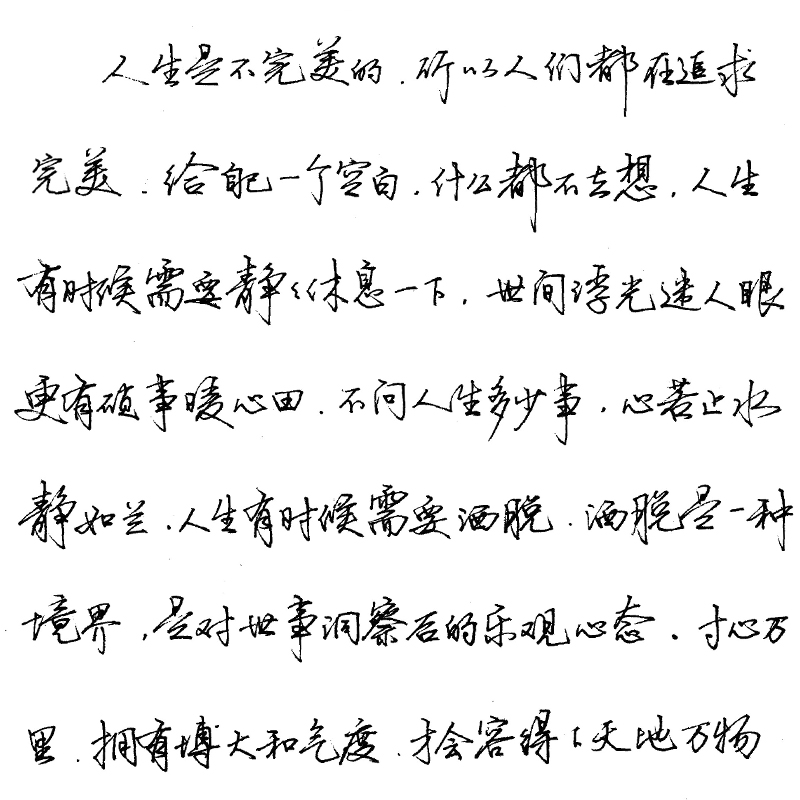 人生是不完美的.所以人们都在追求
完美.给自己一个空白.什么都不去想.人生
有时候需要静静休息一下.世间浮光迷人眼
更有碩事暖心田.不问人生多少事.心若止水
静如兰.人生有时候需要洒脱.洒脱是一种
境界,是对世事洞察后的乐观心态.寸心万
里.拥有博大和气度.才会容得下天地万物